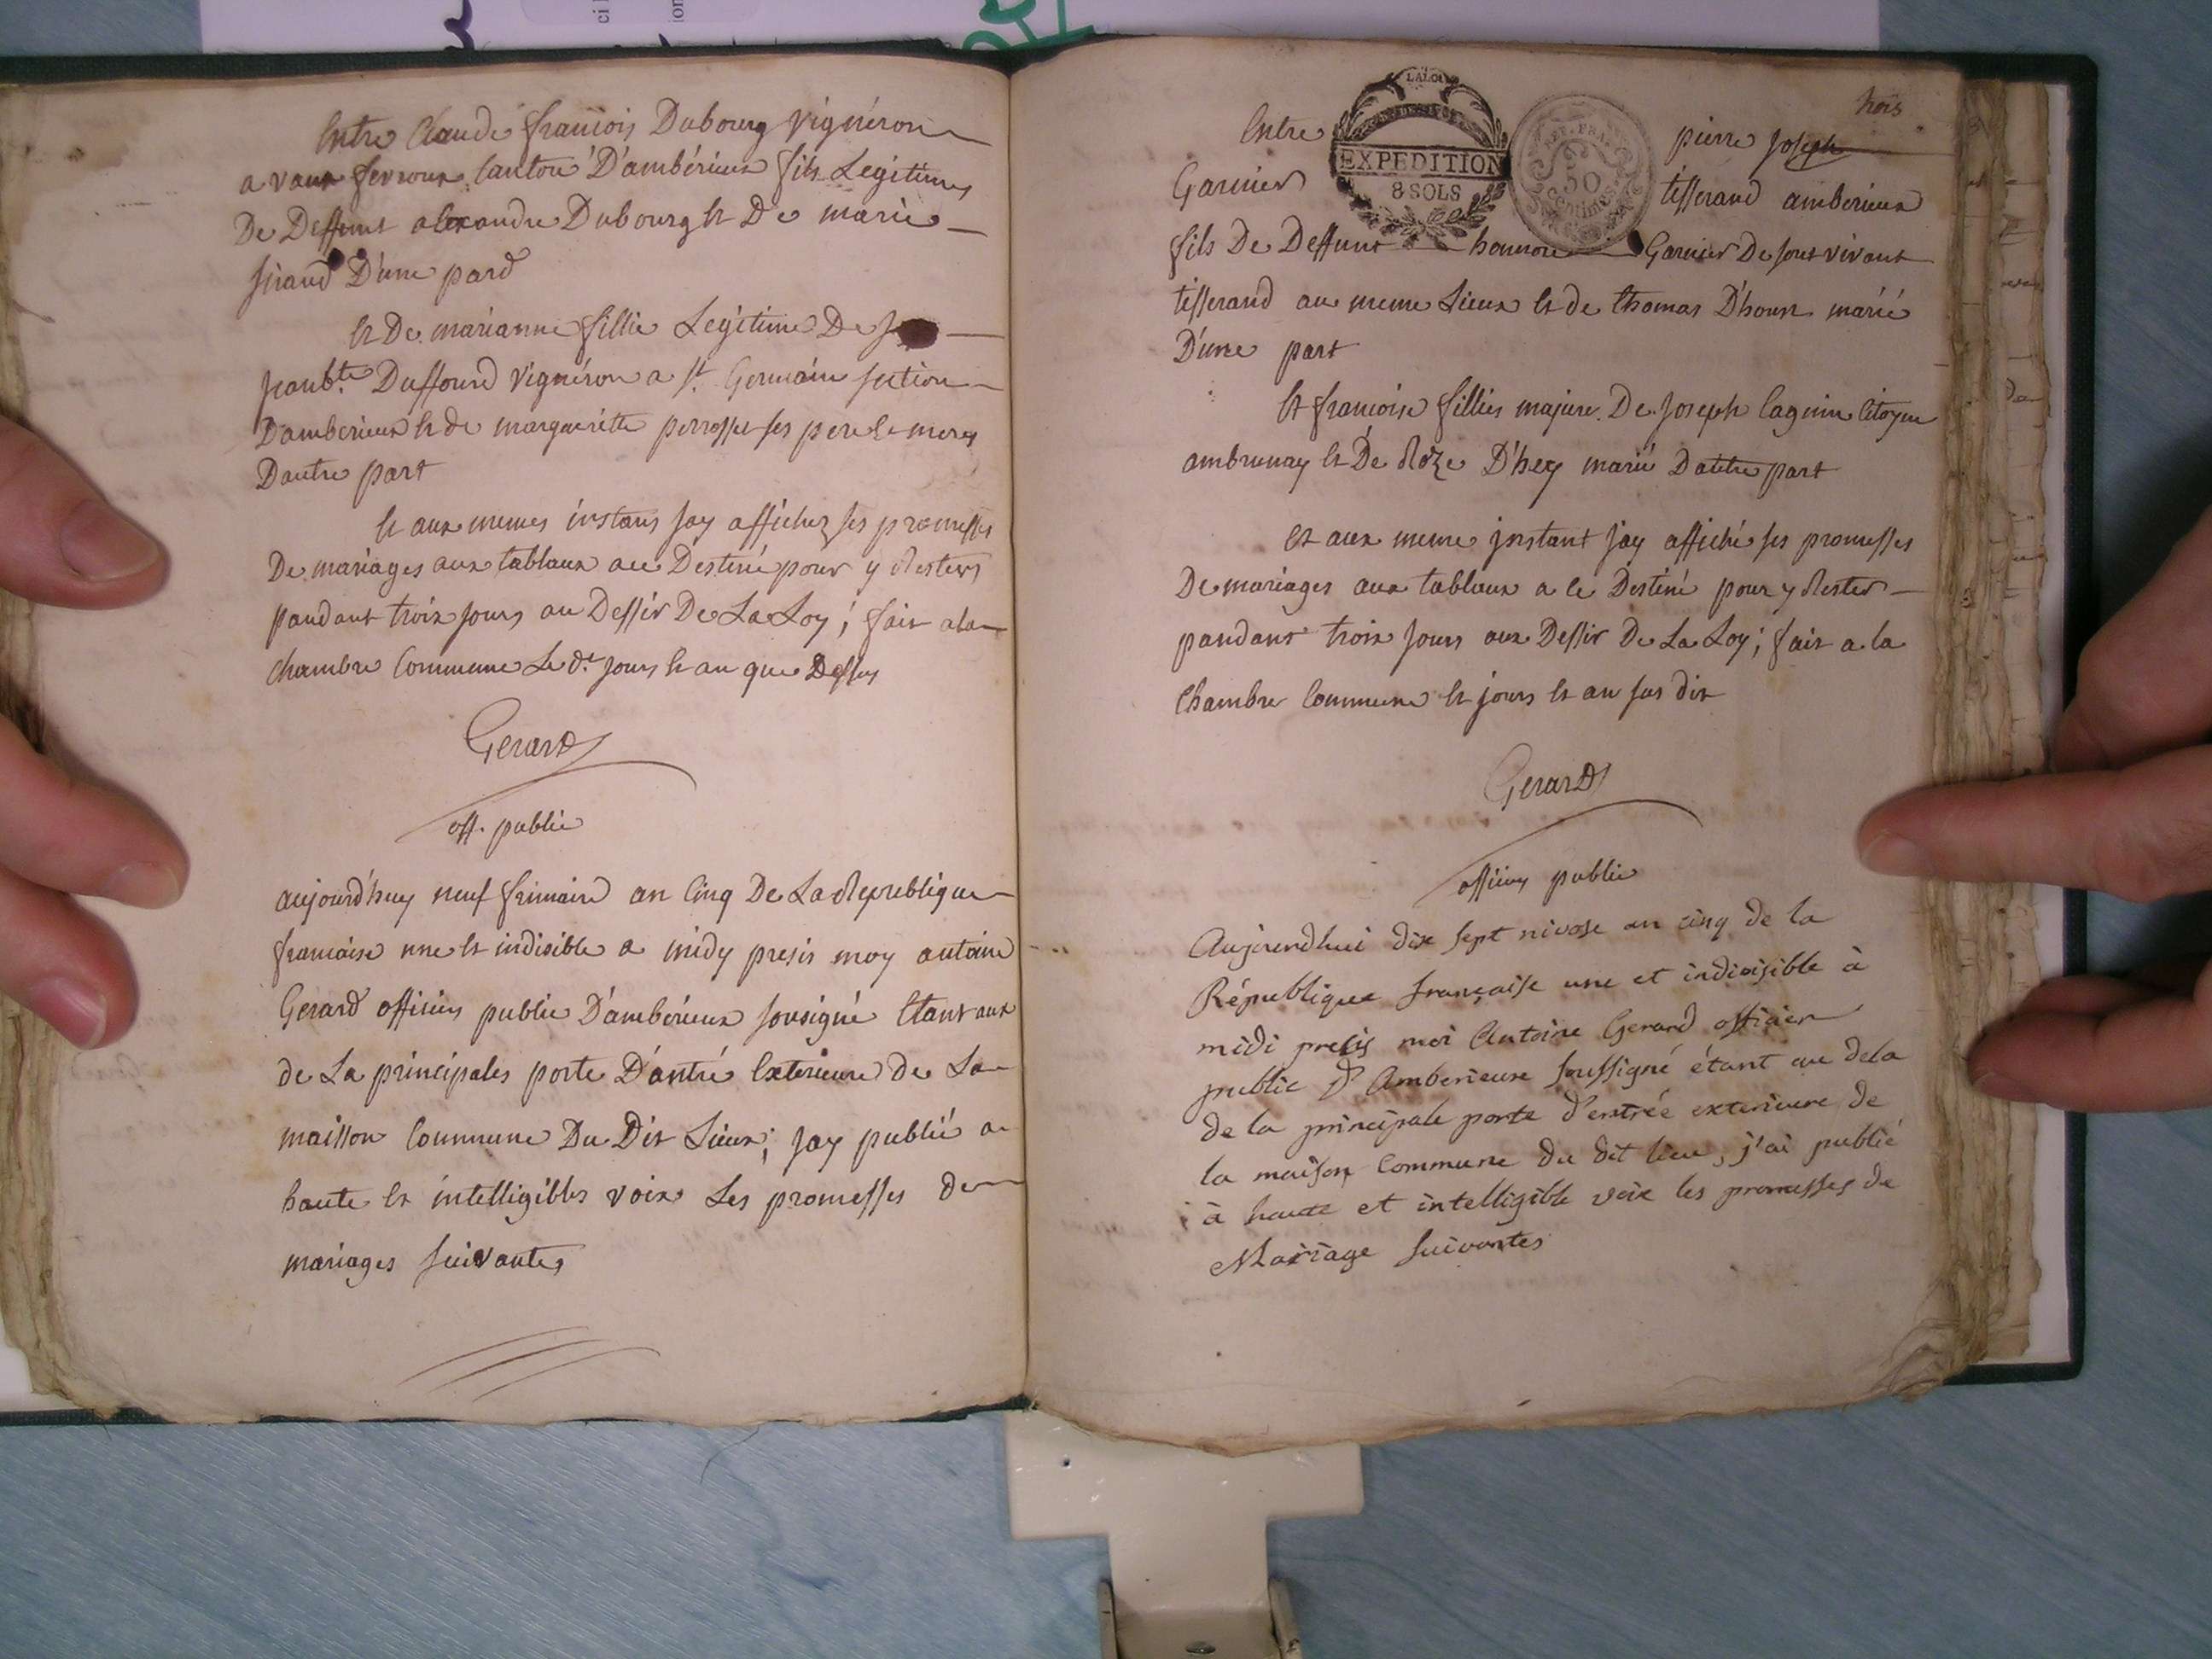 Entre Claude francois Dubourg vigneron
a vaux fevroux canton D'ambérieux fils Legitimes
De Deffunt alexandre Dubourg et De marie
sirand D'une pard
et De marianne fillie Legitime De
jeanbte Duffourd vignéron a St. Germain section
D'amberieux et de margueritte perrosset ses pere e meres
Dautre part
et aux memes instans jay affichez ses promesses
De mariages aux tablaux au Destiné pour y Resters
pandant troix jours au Dessir De La Loy; fait a la
chambre Commune Le dt. jours et an que Dessus
Gerard
off. public
aujourd'huy neuf frimaire an Cinq De La Republique
francaise une et indisible a midy presis moy antoine
Gerard officiers public D'amberieux sousigné Etant aux
de La principales porte D'antré Exterieure de La
maisson Commune Du Dit Lieux; jay publié a
haute et intelligibles voix Les promesses de
mariages suivantes
trois
LALOI
EXPEDITION
8 SOLS
REP. FRA.
50
Centimes
Entre pierre joseph
Garnier tisserand amberieux
fils De Deffunt honnore Garnier De sont vivant
tisserand au meme Lieux et de thomas D'houn marié
D'une part
Et francoise fillies majure De joseph Cagnin Citoyen
ambrunay et De Roze D'hey marié Dautre part
et aux meme jnstant jay affiché ses promesses
De mariages aux tablaux a le Destiné pour y Rester
pandant troix jours aux Dessir De La Loy; fait a la
Chambre Commune et jours et an sus dit
Gerard
officiers public
Aujourendhui dix sept nivose an cinq de la
République française une et indivisible à
midi presis moi Antoine Gerard officier
public d'Amberieux soussigné étant au dela
de la principale porte d'entrée exterieure de
la maison Commune du dit lieu, j'ai publié
à haute et intelligible voix les promesses de
Mariage suivantes